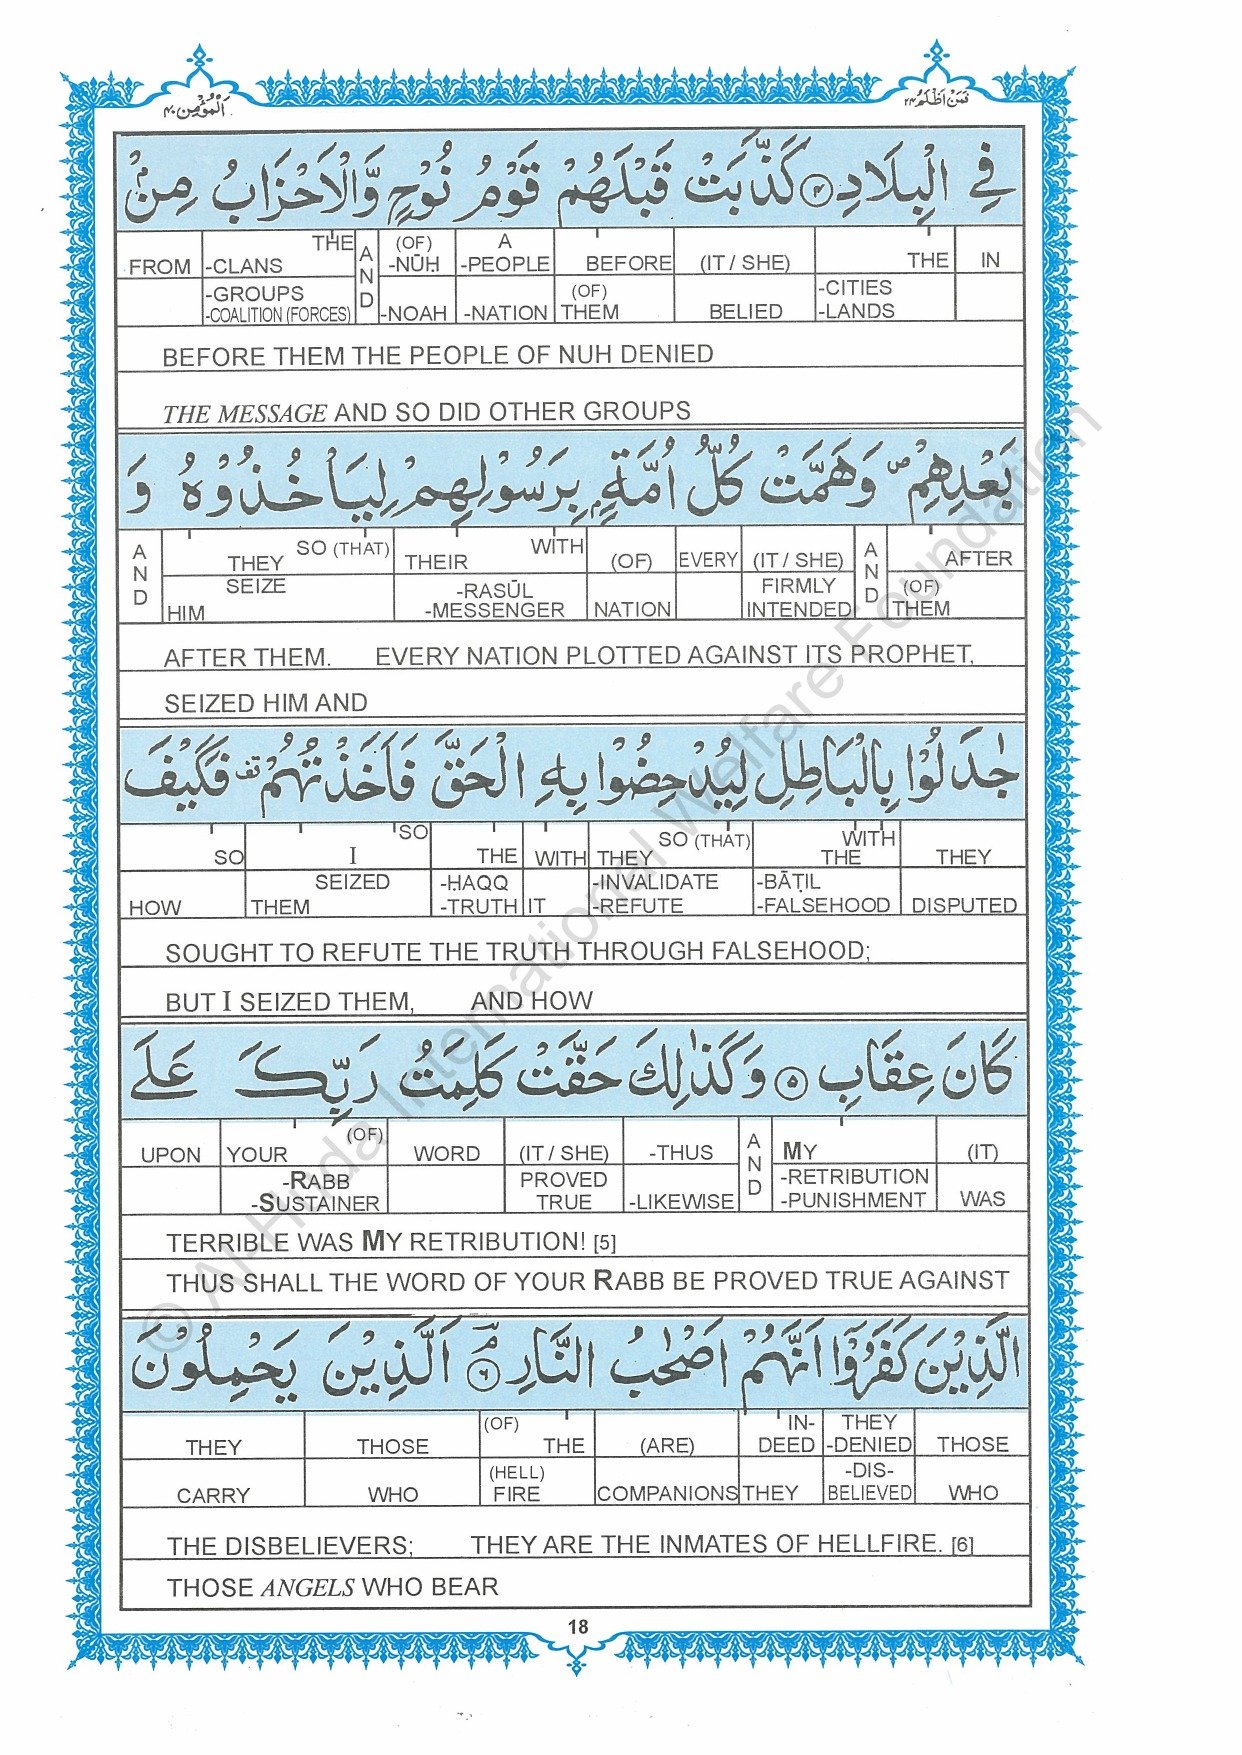 اَلْمُؤْمِن ٤٠ فَمَنْ اَظْلَمُ ٢٤
فِي الْبِلَادِ ۴ كَذَّبَتْ قَبْلَهُمْ قَوْمُ نُوْحٍ وَّالْاَحْزَابُ مِنْۢ
FROM THE AND (OF) A BEFORE (IT / SHE) THE IN
-CLANS -NŪḤ -PEOPLE
-GROUPS -NOAH -NATION (OF) THEM BELIED -CITIES
-COALITION (FORCES) -LANDS
BEFORE THEM THE PEOPLE OF NUH DENIED
THE MESSAGE AND SO DID OTHER GROUPS
بَعْدِهِمْ ۪ وَهَمَّتْ كُلُّ اُمَّةٍۭ بِرَسُوْلِهِمْ لِيَاْخُذُوْهُ وَ
AND THEY SO (THAT) THEIR WITH (OF) EVERY (IT / SHE) AND AFTER
SEIZE -RASŪL FIRMLY (OF)
HIM -MESSENGER NATION INTENDED THEM
AFTER THEM. EVERY NATION PLOTTED AGAINST ITS PROPHET,
SEIZED HIM AND
جٰدَلُوْا بِالْبَاطِلِ لِيُدْحِضُوْا بِهِ الْحَقَّ فَاَخَذْتُهُمْ قف فَكَيْفَ
SO SO I THE WITH THEY SO (THAT) WITH THE THEY
SEIZED -ḤAQQ -INVALIDATE -BĀṬIL
HOW THEM -TRUTH IT -REFUTE -FALSEHOOD DISPUTED
SOUGHT TO REFUTE THE TRUTH THROUGH FALSEHOOD;
BUT I SEIZED THEM, AND HOW
كَانَ عِقَابِ ۵ وَكَذٰلِكَ حَقَّتْ كَلِمَتُ رَبِّكَ عَلَى
UPON YOUR (OF) WORD (IT / SHE) -THUS AND MY (IT)
-RABB PROVED -RETRIBUTION
-SUSTAINER TRUE -LIKEWISE -PUNISHMENT WAS
TERRIBLE WAS MY RETRIBUTION! [5]
THUS SHALL THE WORD OF YOUR RABB BE PROVED TRUE AGAINST
الَّذِيْنَ كَفَرُوْٓا اَنَّهُمْ اَصْحٰبُ النَّارِ ۶ؔ اَلَّذِيْنَ يَحْمِلُوْنَ
(OF) IN- THEY
THEY THOSE THE (ARE) DEED -DENIED THOSE
(HELL) -DIS-
CARRY WHO FIRE COMPANIONS THEY BELIEVED WHO
THE DISBELIEVERS; THEY ARE THE INMATES OF HELLFIRE. [6]
THOSE ANGELS WHO BEAR
18
© Al-Huda International Welfare Foundation